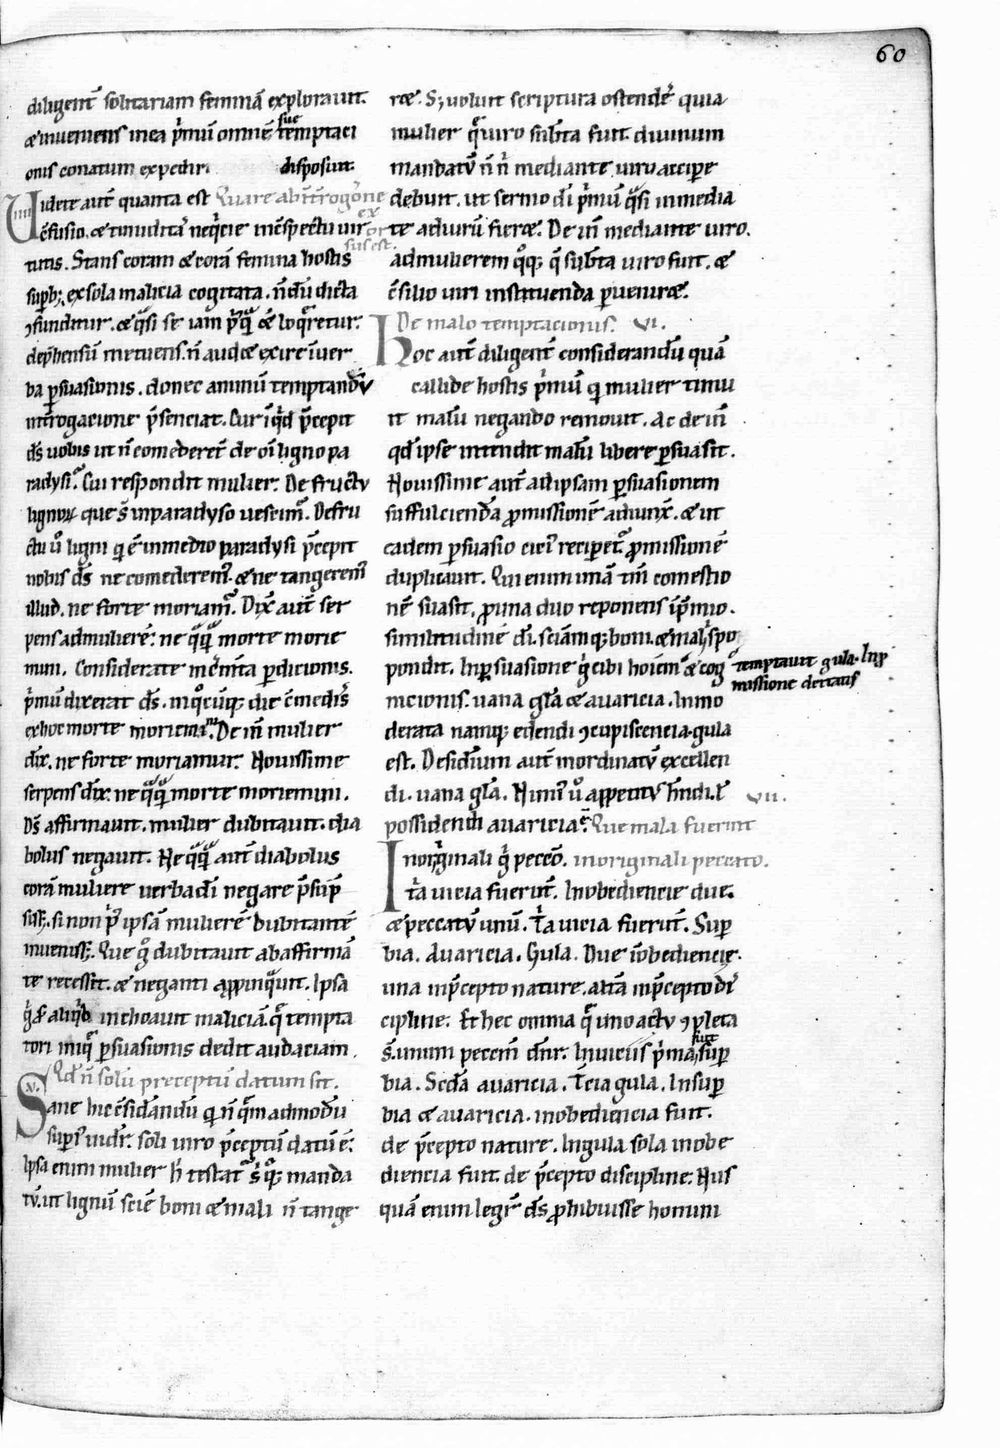 60
diligent̄ solitariam feminā explorauit.
& inueniens in ea p̄mū omnē sue temptati
onis conatum expediri disposuit.
Videte aut̄ quanta est Quare ab int̄rogat̄one
c̄fusio. & timiditas nequicie in c̄spectu uir ex or
tutis. Stans coram & corā femina hostis sus est.
supb᷒; ex sola malicia cogitata. n̄dū dicta
ꝯfunditur. & qͣsi se iam
dep̄hensū metuens. n̄ audet exire in uer
ba ꝑsuasionis. donec animū temptandū
int̄rogacione p̄senciat. Cur p̄cepit
dc̄s uobis ut n̄ comederet̄ de oī ligno pa
radysi? Cui respondit mulier: De fructu
lignorꝝ que sᷤ in paradyso uescim᷒. De fru
ctu ů ligni qđ ē in medio paradysi p̄cepit
nobis dc̄s ne comederem᷒. & ne tangerem᷒
illud. ne forte moriam᷒. Dix̄ aut̄ ser
pens ad mulierē: ne qͣqͣ morte morie
mini. Considerate incm̄ta ꝑdicionis.
p̄mū dixerat dc̄s. in qͦcūqꝫ die c̄med᷒is
ex hoc morte moriemini. De in̄ mulier
dix̄. ne forte moriamur. Nouissime
serpens dix̄. ne qͣqͣ morte moriemini.
Dc̄s affirmauit. mulier dubitauit. dia
bolus negauit. Ne qͣqͣ aut̄ diabolus
corā muliere uerba dī negare p̄sūp
sisset. si non p̄us ipsā mulierē dubitantē
inuenisset. Que gͦ dubitauit ab affirmā
te recessit. & neganti appinqͣuit. Ipsa
inchoauit maliciā. qͣ tempta
tori iniqͣ ꝑsuasionis dedit audaciam.
V. Qđ n̄ solū preceptū datum sit.
Sane hic c̄sidandū qđ n̄ qͣm admodū
supī᷒ uidr̄. soli uiro p̄ceptū datū ē:
Ipsa enim mulier h̄ testat᷒ sᷤ qͦqꝫ manda
tū. ut lignū scīe boni & mali n̄ tange
ret. Sꝫ uoluit scriptura ostendē quia
mulier qͣ uiro subīta fuit. diuinum
mandatū n̄ n̄ mediante uiro accipe
debuit. ut sermo dī p̄mū qͣsi inmedia
te ad uirū fieret. De in̄ mediante uiro.
ad mulierem qͦqꝫ q̄ subīta uiro fuit. &
c̄silio uiri instituenda ꝑueniret.
De malo temptacionis. VI.
Hoc aut̄ diligent̄ considerandū quā
callide hostis p̄mū qđ mulier timu
it malū negando remouit. Ac de in̄
qđ ipse intendit malū libere ꝑsuasit.
Nouissime aut̄ ad ipsam ꝑsuasionem
suffulcienda ꝓmissionē adiunx̄. & ut
eadem ꝑsuasio recipet᷒ ꝓmissionē
duplicauit. Qui enim unā tm̄ comestio
nē suasit, ꝓ una duo reponens ip̄mio.
similitudinē dī. sciāmqꝫ boni & mali spo
pondit. In ꝑsuasione gͦ cibi hoīem temptauit gula. In ꝓ
missione deitatis & cog
nicionis. uana gl̄a & auaricia. Inmo
derata namqꝫ edendi ꝯcupiscencia gula
est. Desidīum aut̄ inordinatū excellen
di. uana gl̄a. Nimi᷒ ů appetitus hn̄di. ł VII.
possidendi auaricia ē. Que mala fuerint
In originali gͦ pecc̄o. in originali peccato.
tͥa uicia fuerūt. Inobediencie due.
& peccatū unū. Tͥa uicia fuerūt. Sup
bia. Auaricia. Gula. Due īobediencie.
una in p̄cepto nature. altā in p̄cepto di
scipline. Et hec omnia qͣ uno actu ꝯpleta
sᷤ. unum pecc̄m dn̄r. In uiciis p̄ma fuit sup
bia. Scd̄a auaricia. Tc̄ia gula. In sup
bia & auaricia. inobediencia fuit.
de p̄cepto nature. In gula sola inobe
diencia fuit. de p̄cepto discipline. Nus
quā enim legit᷒ dc̄s ꝓhibuisse homini